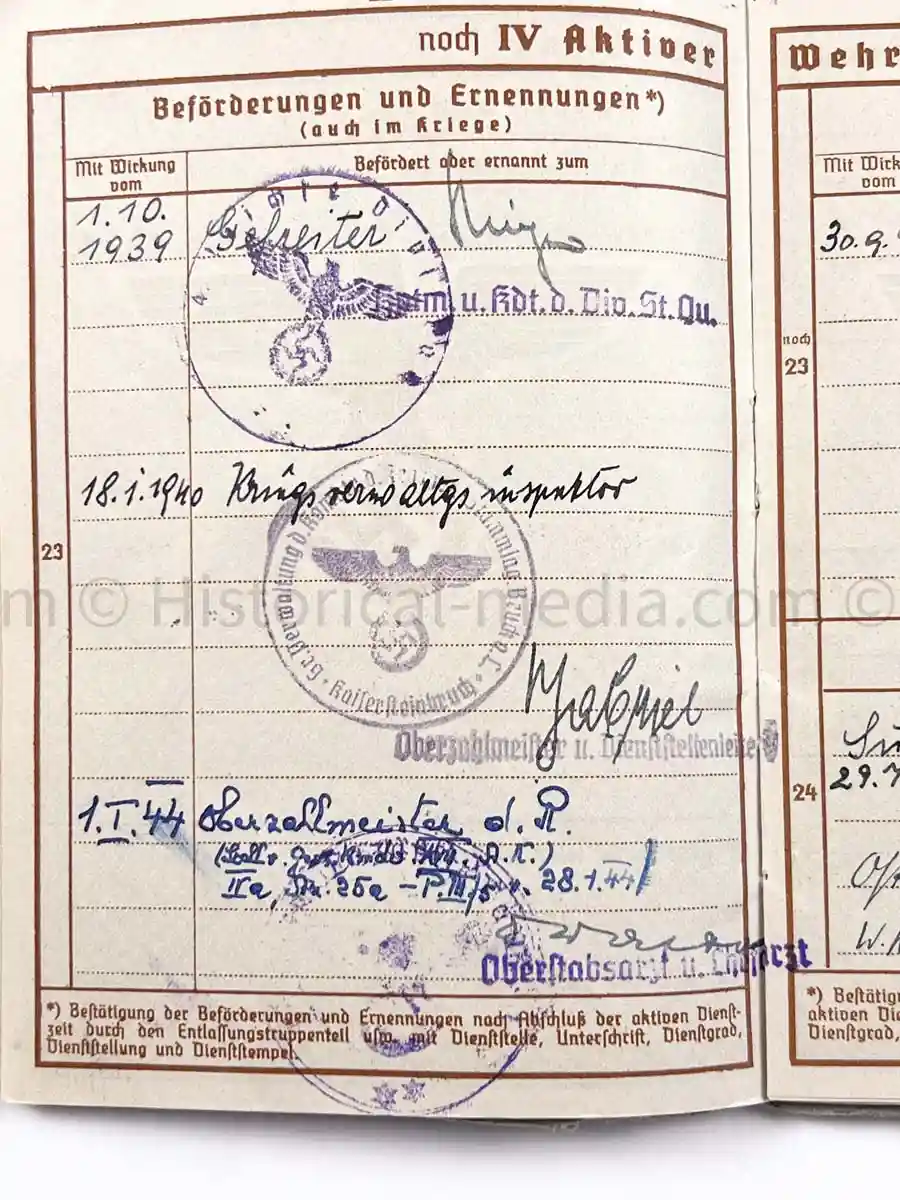 noch IV Aktiver
Beförderungen und Ernennungen*)
(auch im Kriege)
Mit Wirkung
vom
Befördert oder ernannt zum
1.10.
1939 Gefreiter
Hptm. u. Kdt. d. Div. St. Qu.
18.1.1940 Kriegsverwaltgsinspektor
23
Kaisersteinbruch
Bruck a. L.
Oberzahlmeister u. Dienststellenleiter
1.I.44 Oberzahlmeister d. R.
IIa, Nr. 25a – P.III/5 v. 28.1.44
Oberstabsarzt u. Chefarzt
*) Bestätigung der Beförderungen und Ernennungen nach Abschluß der aktiven Dienst-
zeit durch den Entlassungstruppenteil usw. mit Dienststelle, Unterschrift, Dienstgrad,
Dienststellung und Dienststempel.
Wehr
Mit Wirk
vom
30.9.
noch
23
24
29.
W.
*) Bestätig
aktiven Die
Dienstgrad,
m © Historical-media.com ©